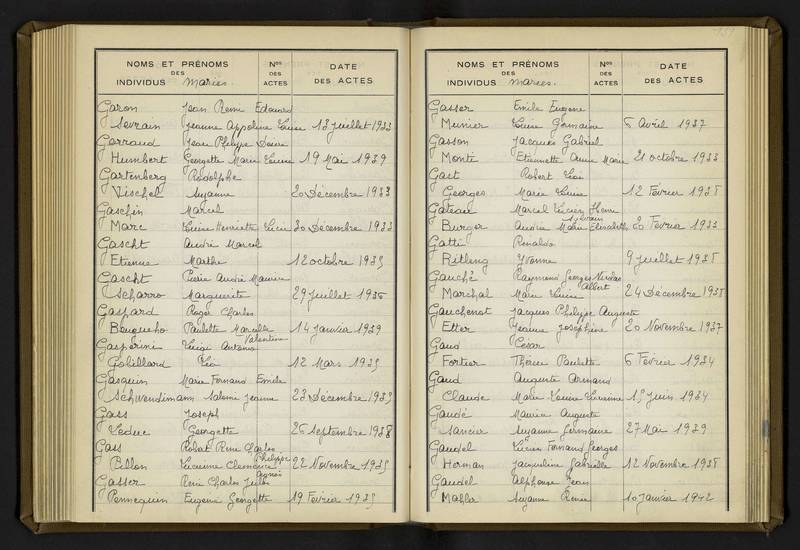 NOMS ET PRÉNOMS
DES
INDIVIDUS Mariés.
Nos
DES
ACTES
DATE
DES ACTES
Garon Jean René Edouard
Sevrain Jeanne Appoline Louise 13 Juillet 1933
Garraud Jean Philippe
Humbert Georgette Marie Louise 19 Mai 1939
Gartenberg Rodolphe
Vischel Suzanne 20 Décembre 1933
Gaschin Marcel
Marc Louise Henriette 30 Décembre 1933
Gascht André Marcel
Etienne Marthe 12 octobre 1935
Gascht Pierre André Maurice
Scharro Marguerite 29 Juillet 1936
Gaspard Roger Charles
Bouqueho Paulette Marcelle 14 Janvier 1939
Valentino
Gasperine Luigi Antonio
Gobillard 12 Mars 1935
Gasquin Marie Fernand Emile
Schwendimann Salomé Jeanne 23 Décembre 1935
Gass Joseph
Leduc Georgette 26 Septembre 1938
Gass Robert René Charles
Philippe
Billon Lucienne Clémence 22 Novembre 1935
Agnès
Gasser René Charles Jules
Pennequin Eugénie Georgette 19 Février 1935
NOMS ET PRÉNOMS
DES
INDIVIDUS Mariés.
Nos
DES
ACTES
DATE
DES ACTES
Gasser Emile Eugène
Munier Germaine 6 Avril 1937
Gasson Jacques Gabriel
Monté Etiennette Anne Marie 21 octobre 1933
Gast Robert Léon
Georges Marie Louise 12 Février 1938
Gateau Marcel Lucien Henri
Sylvain
Burger Andrée Marie Elisabeth 20 Février 1933
Gatti Rinaldo
Ritleng Yvonne 9 Juillet 1938
Gauché Raymond Georges Nicolas
Albert
Marchal Marie Louise 24 Décembre 1938
Gauchenot Jacques Philippe Auguste
Etter Jeanne Joséphine 20 Novembre 1937
Gaud César
Fortier Thérèse Paulette 6 Février 1934
Gaud Auguste Armand
Claude Marie Louise Lucienne 15 Juin 1934
Gaudé Maurice Auguste
Sancier Suzanne Germaine 27 Mai 1939
Gaudel Lucien Fernand Georges
Herman Jacqueline Gabrielle 12 Novembre 1938
Gaudel Alphonse Jean
Mahler Suzanne Renée 10 Janvier 1942